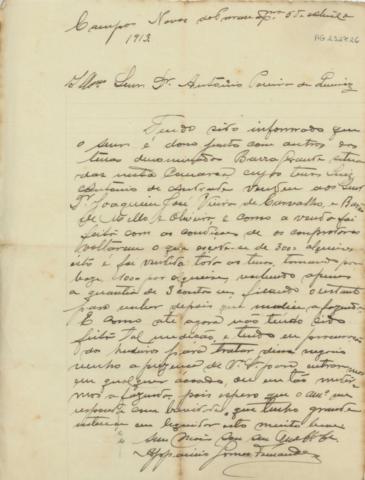 Campos Novos do Paranapma 05 de Maio
1913
AG 232726
Illmo Snr. Dr. Antonio Pereira de Queiroz
Tendo sido informado que
o snr. é dono junto com outros das
terras denominadas Barra Grande situa
das nesta Comarca cujas terras
Antonio de Andrade vendeu aos snrs
Dr. Joaquim José Vieira de Carvalho, e
de Mello e Oliveira, e como a venda foi
feita com as condições de os compradores
voltarem o que de 300 alqueires
isto é foi vendida toda as terras, tomando por
base 100 o alqueire, recebendo apenas
a quantia de 3 contos ficando o restante
para receber depois que
E como até agora não tendo sido
feita tal medição e tendo eu procuração
do herdeiro para tratar desse negocio
venho a presença de V. S. para entrarmos
em qualquer accordo, ou então
mos a fazenda, pois espero que o amo me
responda com brevidade, que tenho grande
interesse em liquidar isto muito breve
Sem mais sou seu
Gomes Fernandes